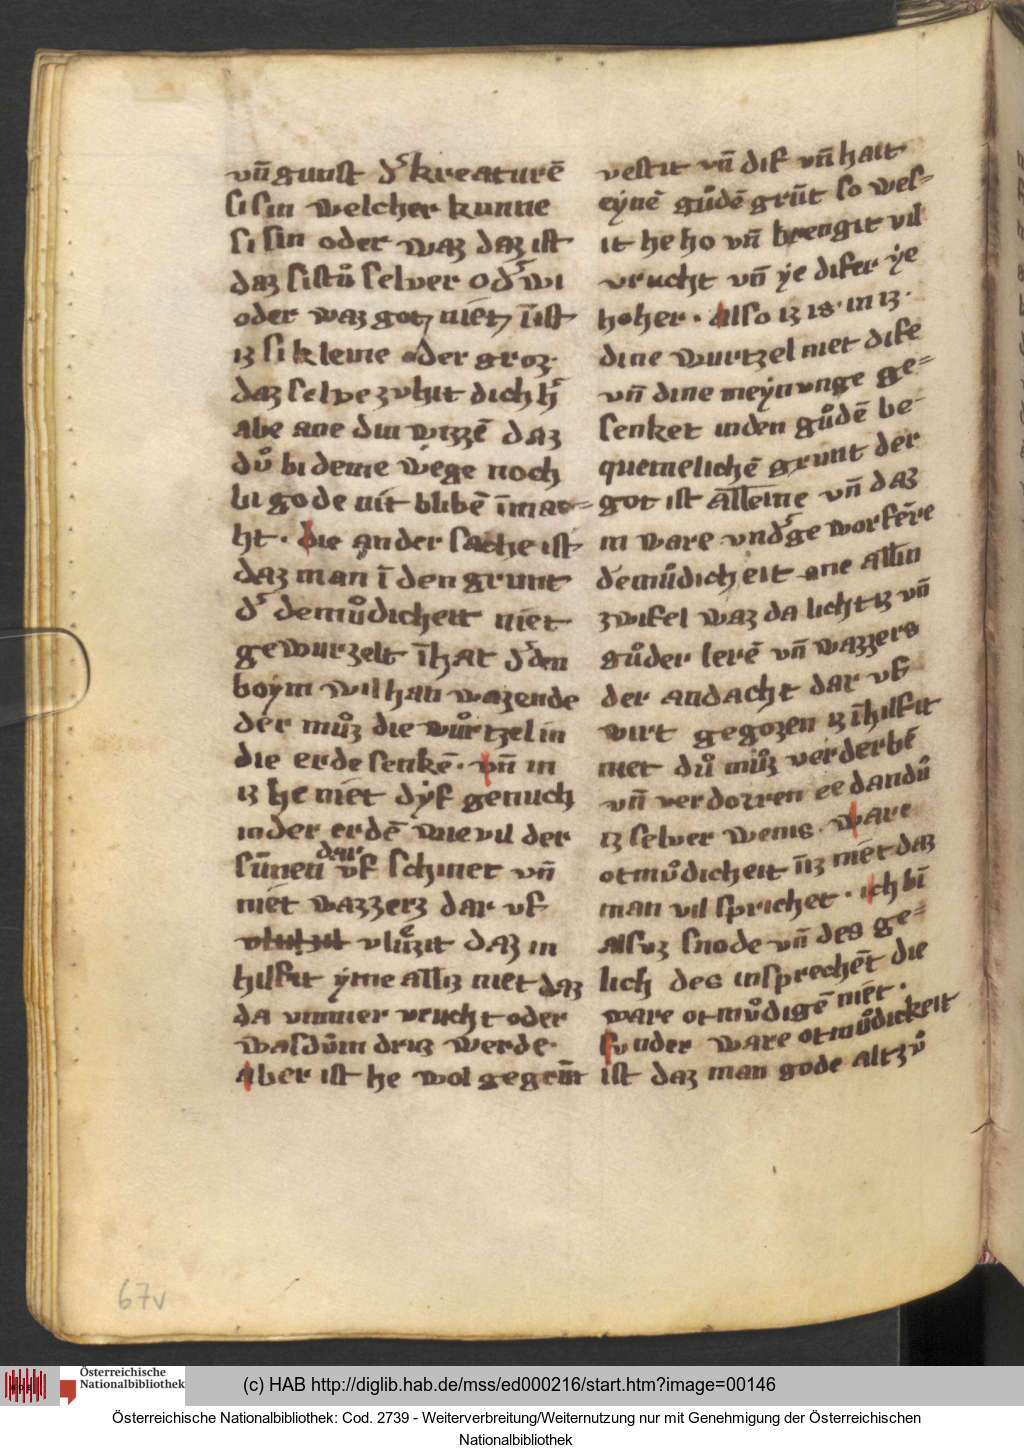 vn̄ gunst d͛ kreaturē
si sin welcher kunne
si sin oder waz daz ist
daz sistu̍ selver od͛ wi
oder waz got niet īist
iz si kleine oder groz·
daz selve zuhit dich h͛
abe ane din wizzē daz
du̍ bi deme wege noch
bi gode nit blibē īmac=
ht · die ander sache ist
daz man ī den grunt
d͛ demůdicheit niet
gewurzelt īhat d͛ den
boym wil han wazende
der můz die wůrtzel in
die erde senkē · vn̄ in
iz he niet dyf genuch
in der erdē wie vil der
sūnen dar vf schinet vn̄
niet wazzerz dar vf
vluzit daz in
hilfit yme alliz niet daz
da vmmer vrucht oder
wasdům driz werde·
aber ist he wol gegrūt
vestit vn̄ dif vn̄ hait
eynē gůdē grūt so wes=
it he ho vn̄ brengit vil
vrucht vn̄ ye difer ye
hoher · also iz is · in iz ·
dine wurtzel niet dife
vn̄ dine meynunge ge=
senket inden gůdē be=
quemelichē grunt der
got ist alleine vn̄ daz
in ware vnd͛geworfēre
demůdicheit ane allin
zwifel waz da licht iz vn̄
gůder lerē vn̄ wazzers
der andacht dar vf
wirt gegozen iz īhilfit
niet dů můz verderbē
vn̄ verdorren ee dandů
iz selver wenis · ware
otmůdicheit n̄iz niet daz
man vil sprichet · ich bī
alsuz snode vn̄ des ge=
lich des insprechēt die
ware otmůdigē niet ·
sunder ware otmůdickeit
ist daz man gode altzů
67v
Österreichische
Nationalbibliothek
(c) HAB http://diglib.hab.de/mss/ed000216/start.htm?image=00146
Österreichische Nationalbibliothek: Cod. 2739 - Weiterverbreitung/Weiternutzung nur mit Genehmigung der Österreichischen
Nationalbibliothek